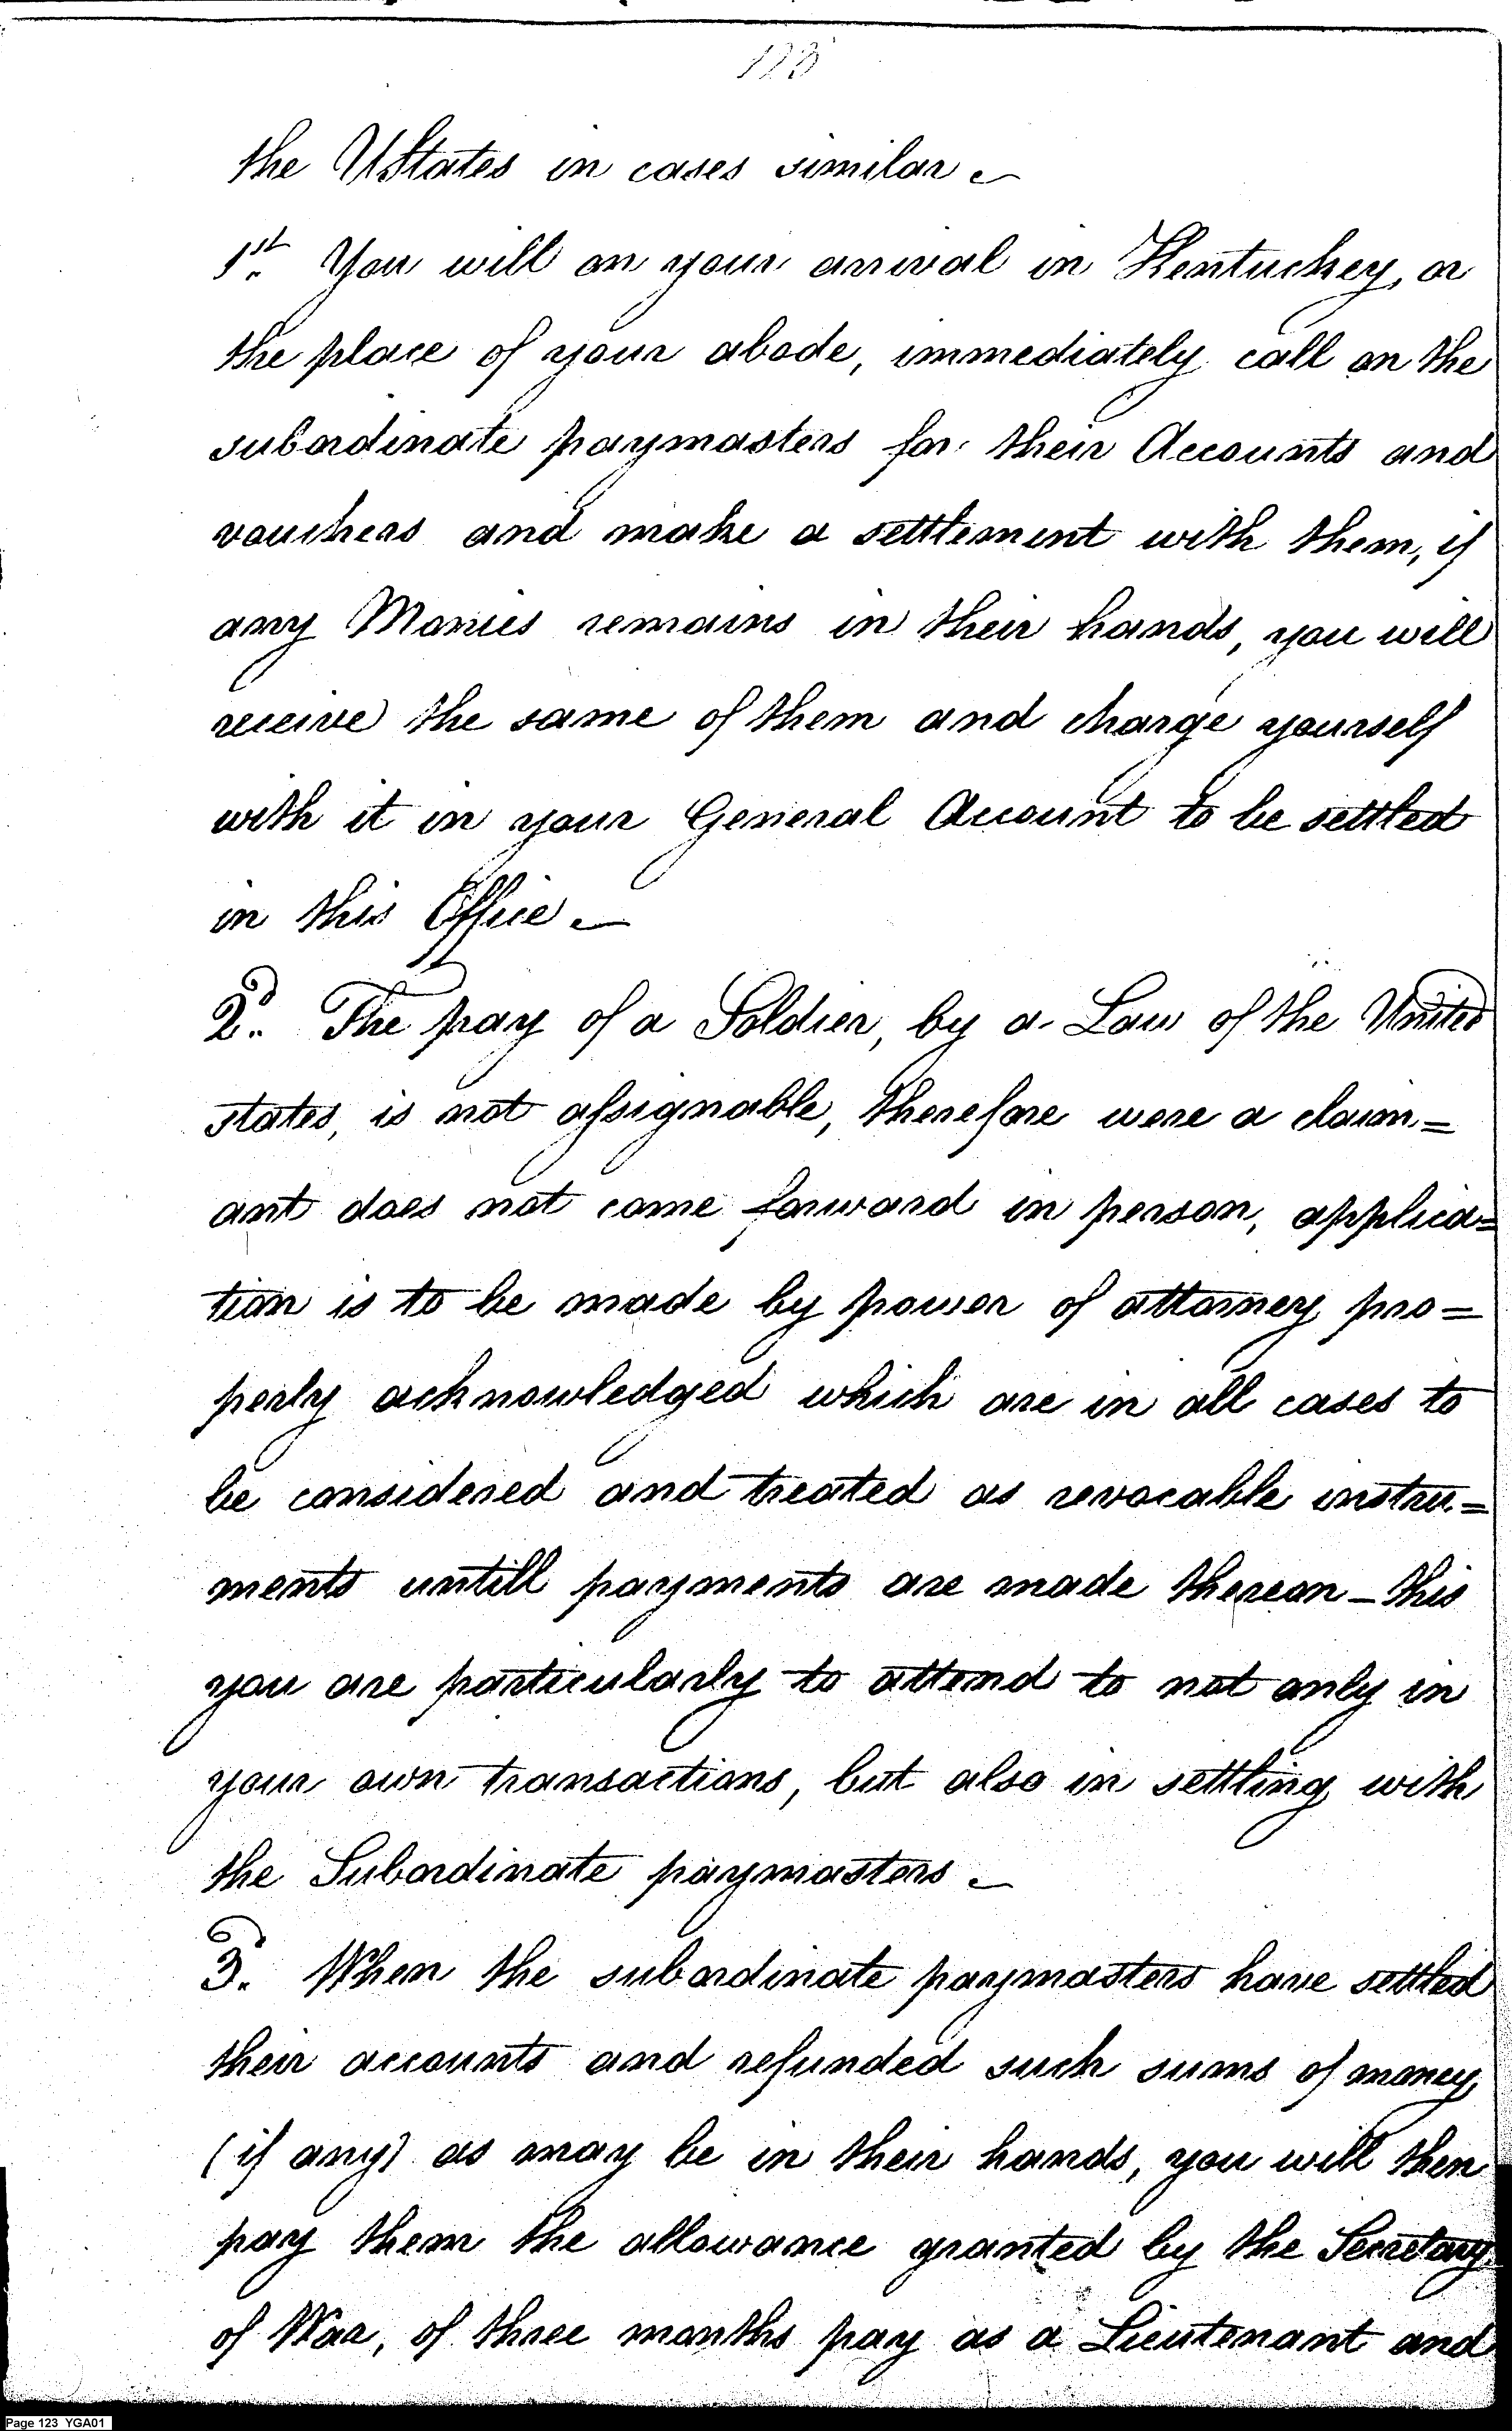 123
the UStates in cases similar ~
1st. You will on your arrival in Kentuckey, or
the place of your abode, immediately call on the
subordinate paymasters for their Accounts and
vouchers and make a settlement with them, if
any Monies remains in their hands, you will
receive the same of them and charge yourself
with it in your General Account to be settled
in this Office ~
2d. The pay of a Soldier, by a Law of the United
states, is not assignable, therefore were a claim=
ant does not come forward in person, applica=
tion is to be made by power of attorney pro=
perly acknowledged which are in all cases to
be considered and treated as revocable instru=
ments untill payments are made thereon – this
you are particularly to attend to not only in
your own transactions, but also in settling with
the Subordinate paymasters ~
3d. When the subordinate paymasters have settled
their accounts and refunded such sums of money
(if any) as may be in their hands, you will then
pay them the allowance granted by the Secretary
of War, of three months pay as a Lieutenant and
Page 123 YGA01